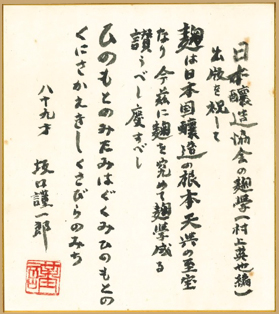 日本醸造協会の麹学(村上英也編)
出版を祝して
麹は日本国醸造の根本天與の至宝
なり今茲に麹を究めて麹学成る
讃うべし慶すべし
ひのもとのみたみはぐくみひのもとの
くにさかえきしくさびらのみち
八十九才 坂口謹一郎